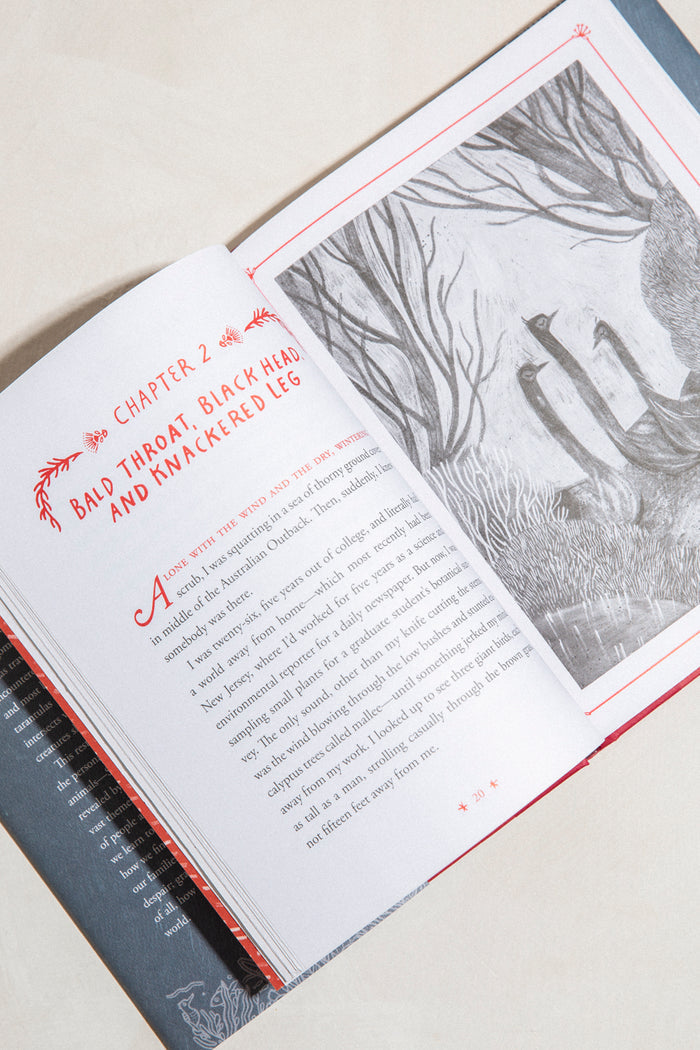 CHAPTER 2
BALD THROAT, BLACK HEAD,
AND KNACKERED LEG
ALONE WITH THE WIND AND THE DRY, WINTERING
scrub, I was squatting in a sea of thorny ground
in middle of the Australian Outback. Then, suddenly, I
somebody was there.
I was twenty-six, five years out of college, and literally
a world away from home—which most recently had
New Jersey, where I'd worked for five years as a science
environmental reporter for a daily newspaper. But now, I
sampling small plants for a graduate student's botanical
vey. The only sound, other than my knife cutting the
was the wind blowing through the low bushes and stunted
calyptus trees called mallee—until something jerked my
away from my work. I looked up to see three giant birds,
as tall as a man, strolling casually through the brown
not fifteen feet away from me.
20
as
and most
tarantulas
intersects
creatures
This
the
animals—
revealed by
vast
of people
we learn to
how we
our
despair;
of all, how
world.